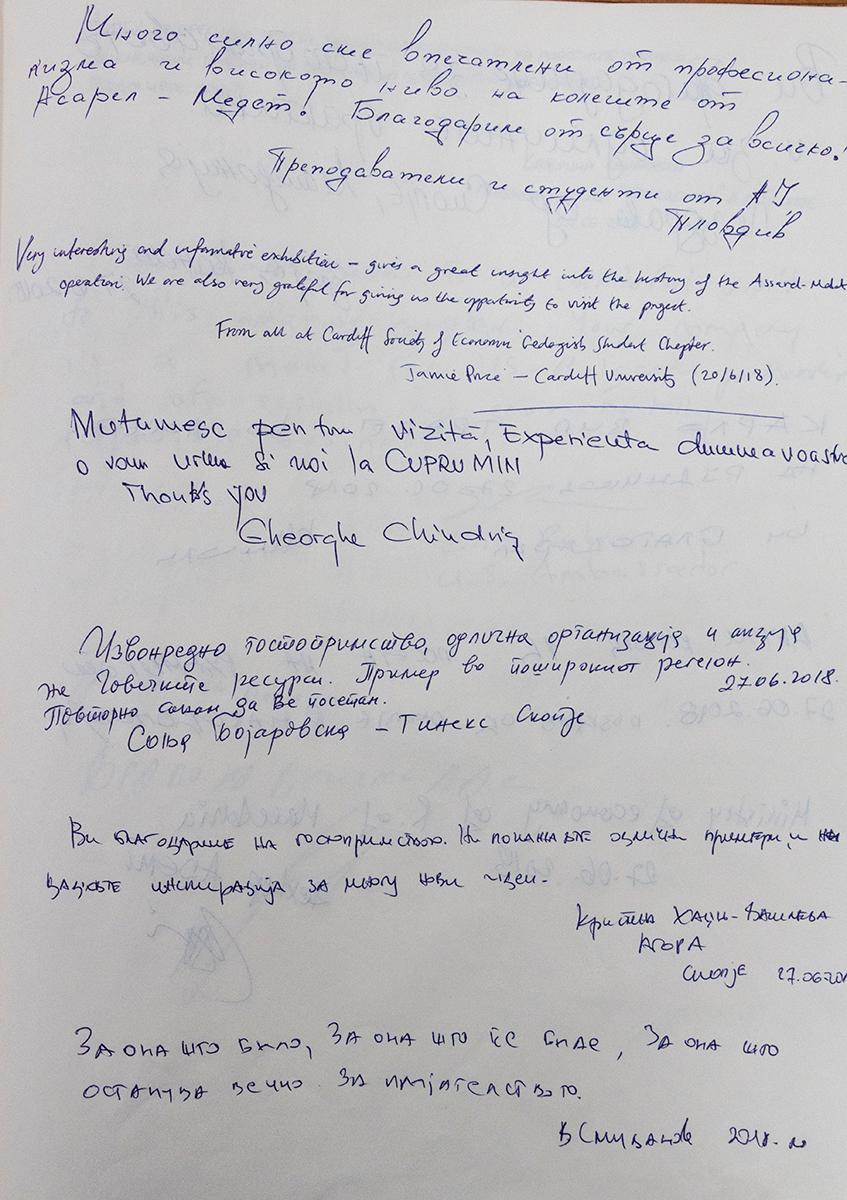 Много силно сме впечатлени от професиона-
лизма и високото ниво на колегите от
Асарел - Медет! Благодарим от сърце за всичко!
Преподаватели и студенти от АУ
Пловдив
Very interesting and informative exhibition - gives a great insight into the history of the Assarel-Medet
operation. We are also very grateful for giving us the opportunity to visit the project.
From all at Cardiff Society of Economic Geologists Student Chapter.
Jamie Price - Cardiff University (20/6/18).
Mutumesc pentru vizită, Experienta dumneavoastra
o vom urma si noi la CUPRU MIN
Thanks you
Gheorghe Chindriş
Извонредно гостопримство, одлична организација и
човечките ресурси. Пример во поширокиот регион.
27.06.2018.
Повторно сакам да Ве посетам.
Соња Бојаровска - Тинекс Скопје
Ви благодариме на гостопримството. Ни покажавте одлични примери, и
дадовте инспирација за многу нови идеи.
Кристина Хаџи-Василева
АГОРА
Скопје 27.06.201
За она што било, за она што ќе биде, за она што
останува вечно за пријателството.
2018